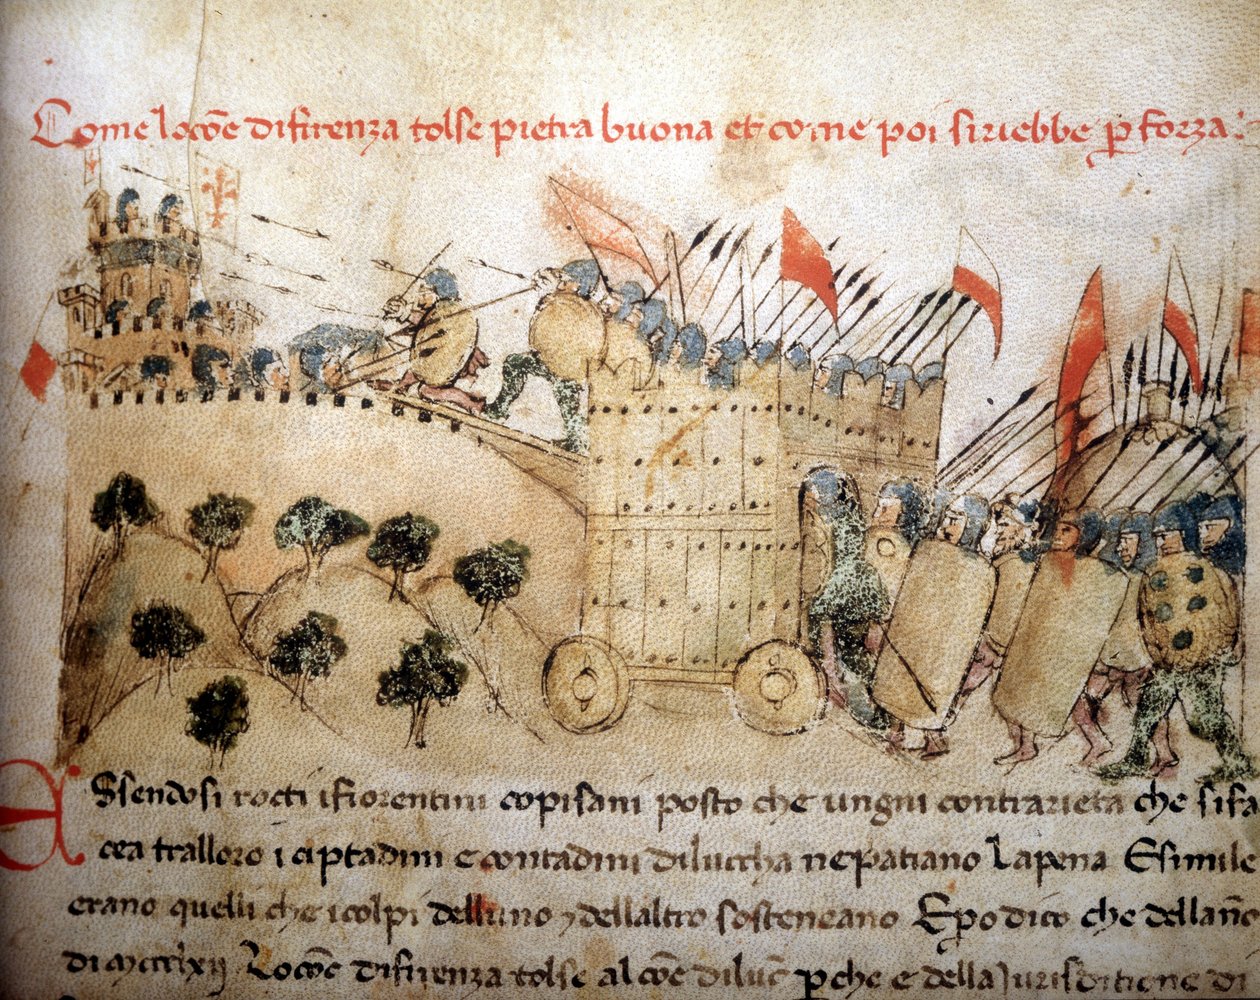 Come locōe difirenza tolse pietra buona et come poi siriebbe p̱ forza
ASsendosi rocti ifiorentini copisani posto che ungni contrarieta che sifa
cea tralloro i ciptadini e contadini diluccha nepatiano lapena Esimile
erano quelli che icolpi delluno ⁊ dellaltro sosteneano Epo dico che dellāno
di mccclxii Locōe difirenza tolse al cōe di luc̄ p̱che e della jurisditione di